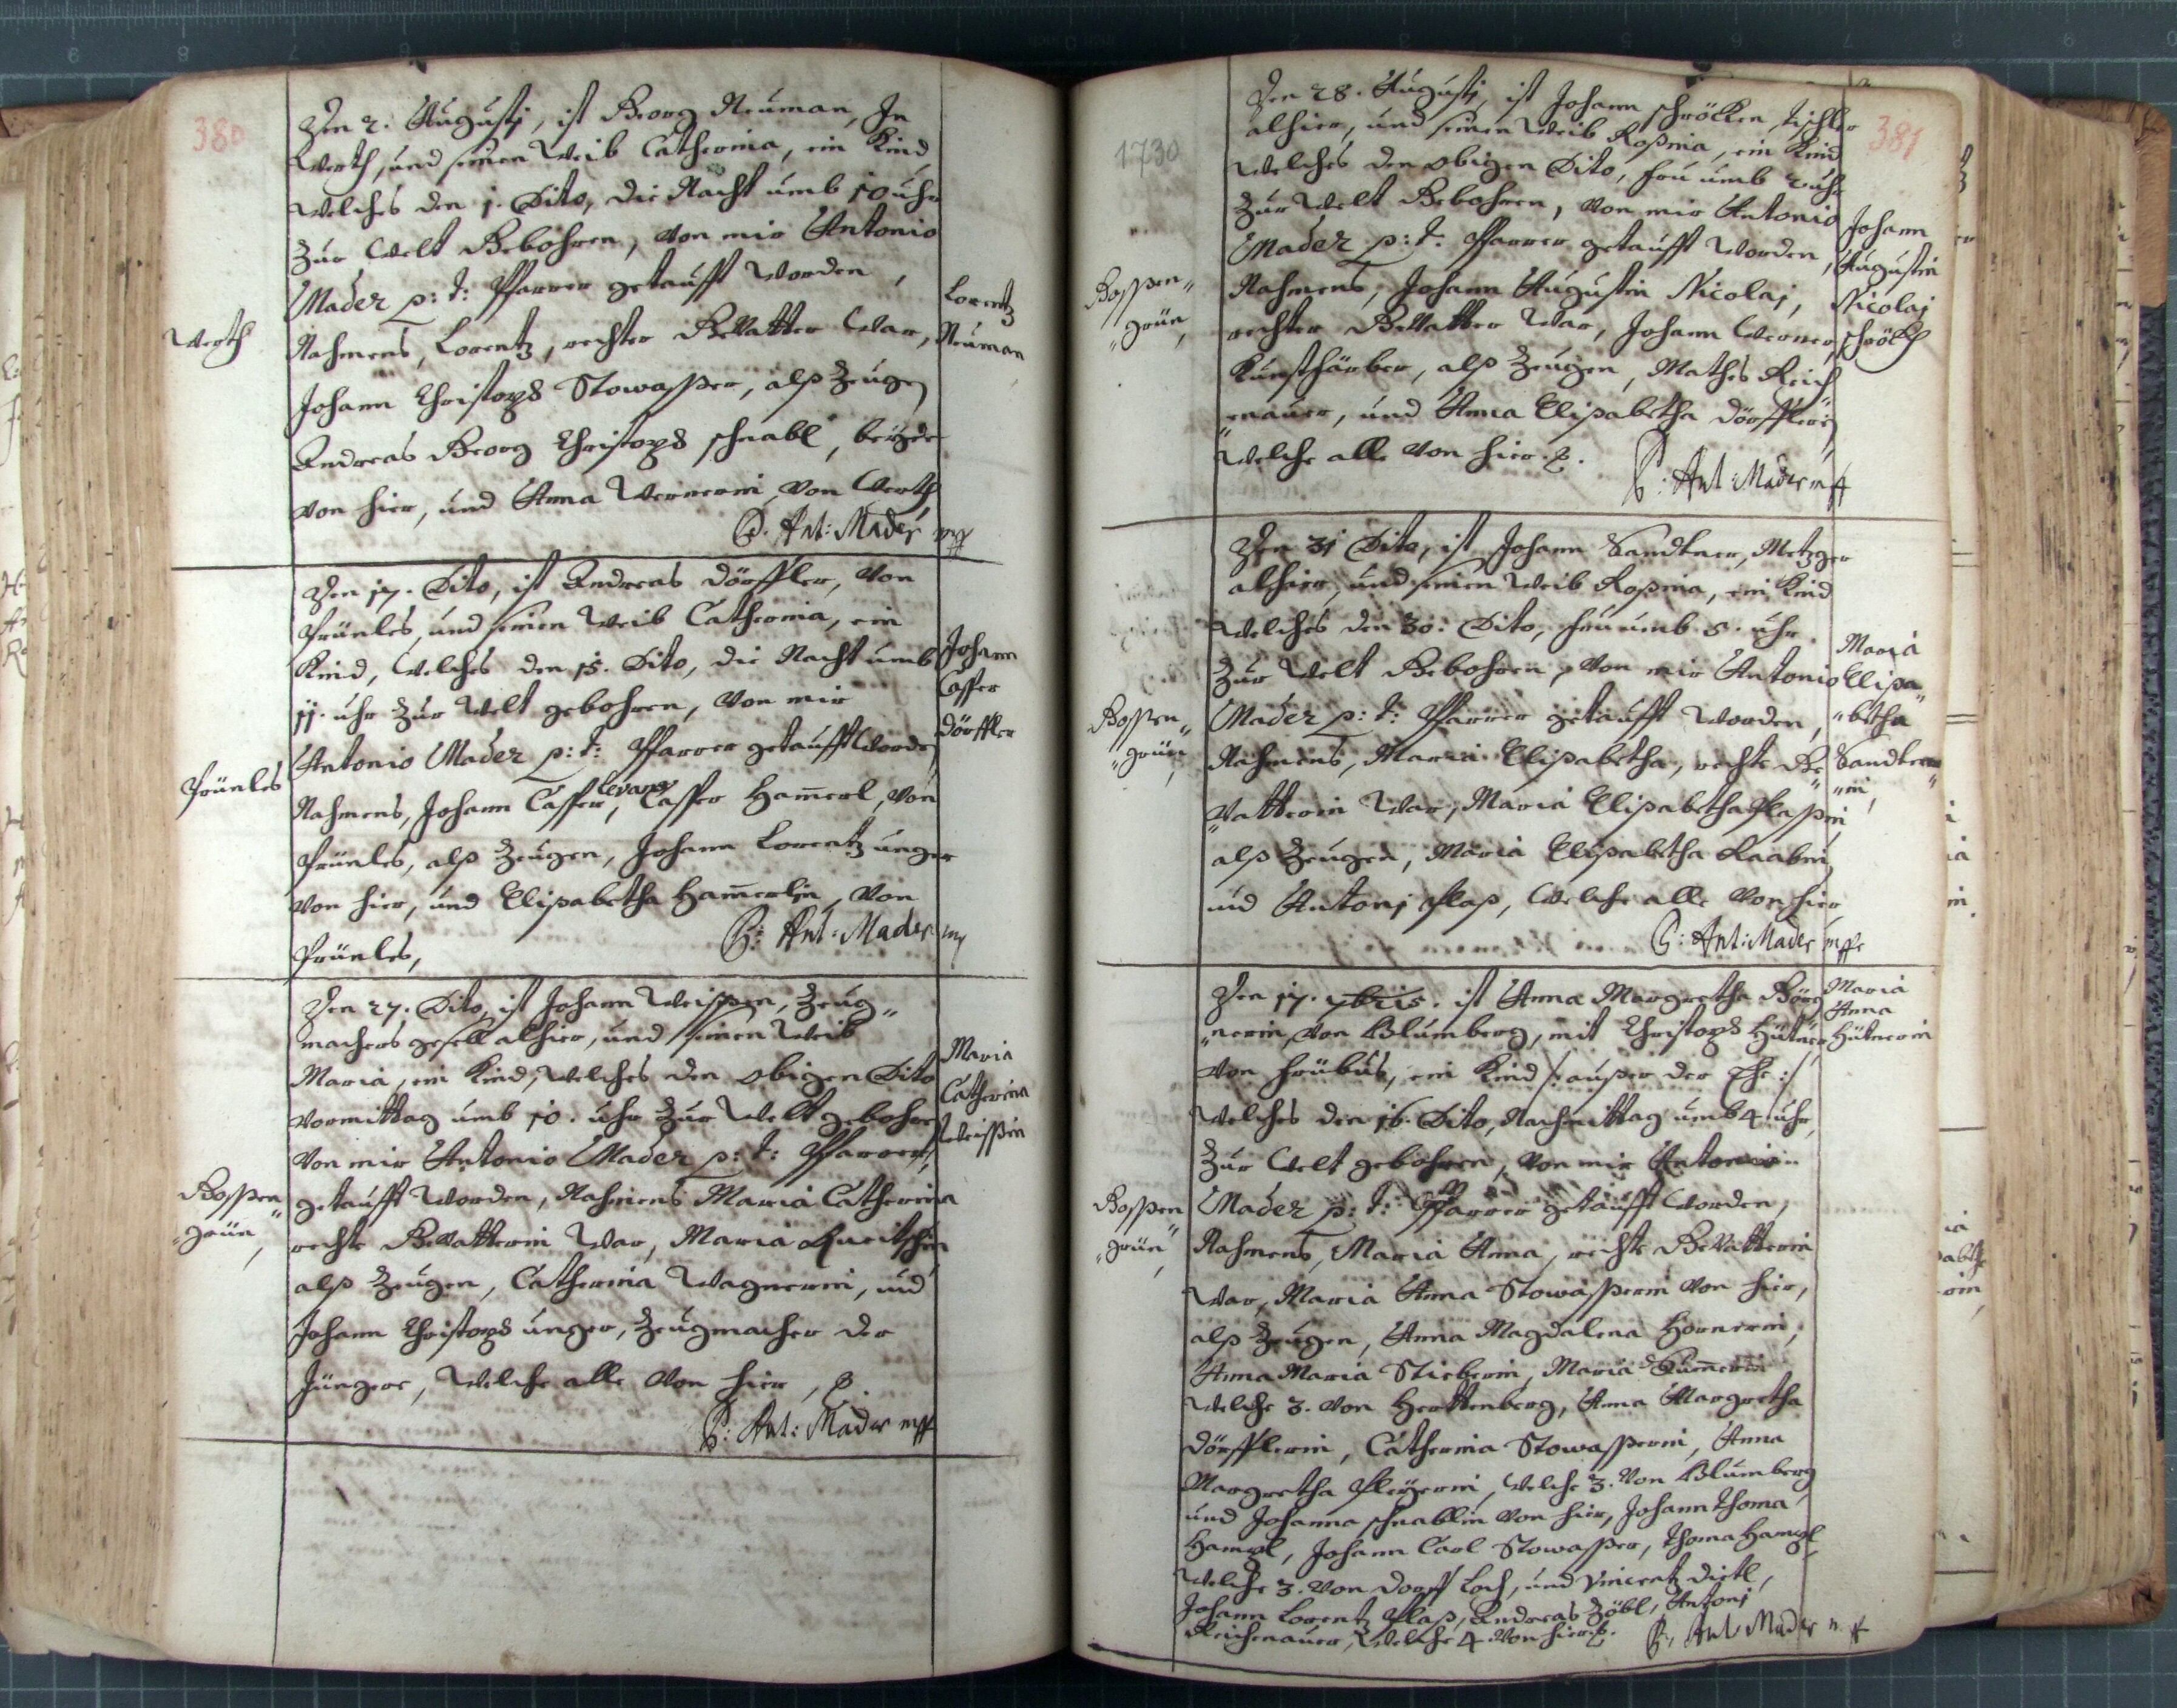 380
Den 2. Augustj, ist Georg Neuman, In
Werth, und seinen Weib Catherina, ein Kind
Welches den 1. Dito, die Nacht umb 10 uhr
Zur Welt Gebohren, von mir Antonio
Mader p: t: Pfarrer getaufft worden,
Nahmens, Lorentz, rechter Gevatter war,
Johann Christoph Stowasser, alß Zeugen
Andreas Georg Christoph schnabl, beyde
von hier, und Anna Wernerin, von Werth,
P. Ant: Mader mpp
Werth
Lorentz
Neuman
Den 17. Dito, ist Andreas Dörffler, von
Prünles, und seinen Weib Catherina, ein
Kind, Welches den 15. Dito, die Nacht umb
11. uhr zur Welt gebohren, von mir
Antonio Mader p: t: Pfarrer getaufft worden
Nahmens, Johann Casper, Gevatter Casper Ham̄erl, von
Prünles, alß Zeugen, Johann Lorentz unger
von hier, und Elisabetha Ham̄erlin, von
Prünles,
P: Ant: Mader mp
Prünles
Johann
Casper
Dörffler
Den 27. Dito, ist Johann Weissen, Zeug„
machers gesell alhier, und seinen Weib
Maria, ein Kind, Welches den obigen Dito
vormittag umb 10. uhr zur Welt gebohren
von mir Antonio Mader p: t: Pfarrer,
getaufft worden, Nahmens Maria Catherina
rechte Gevatterin war, Maria
alß Zeugen, Catherina Wagnerin, und
Johann Christoph unger, Zeugmacher der
Jüngere, Welche alle von hier,
P: Ant: Mader mpp
Gossen„
„grün,
Maria
Catherina
Weissin
1730
381
Den 28. Augustj, ist Johann schröcken, tischler
alhier, und seinen Weib Rosina, ein Kind
Welches den obigen Dito, fru umb 2 uhr
Zur Welt Gebohren, von mir Antonio
Mader p: t: Pfarrer getaufft worden,
Nahmens, Johann Augustin Nicolaj,
rechter Gevatter war, Johann Werner,
Kunstfärber, alß Zeugen, Mathes Reich„
„enauer, und Anna Elisabetha Dörfflerin
Welche alle von hier.
P: Ant: Mader mpp
Gossen„
„grün,
Johann
Augustin
Nicolaj
schröckh
Den 31 Dito, ist Johann Sandtner, Metzger
alhier, und seinen Weib Rosina, ein Kind
Welches den 30. Dito, fru umb 5. uhr
Zur Welt Gebohren, von mir Antonio
Mader p: t: Pfarrer getaufft worden,
Nahmens, Maria Elisabetha, rechte Ge„
„vatterin war, Maria Elisabetha Plassin
alß Zeugen, Maria Elisabetha Raabin
und Antonj Plaß, Welche alle von hier
P: Ant: Mader mpp
Gossen„
„grün,
Maria
Elisa„
„betha
Sandtner„
„in,
Den 17. 7bris. ist Anna Margretha Börg„
„nerin, von Blumberg, mit Christoph Hütner
von Frübus, ein Kind /: ausser der Ehe :/
Welches den 16. Dito, Nachmittag umb 4 uhr,
Zur Welt gebohren, von mir Antonio
Mader p: t: Pfarrer getaufft worden,
Nahmens, Maria Anna, rechte Gevatterin
war, Maria Anna Stowasserin von hier,
alß Zeugen, Anna Magdalena Hornerin,
Anna Maria Stieberin, Maria
Welche 3. von Herttenberg, Anna Margretha
Dörfflerin, Catherina Stowasserin, Anna
Margretha Pleyerin, Welche 3. von Blumberg
und Johanna schnablin von hier, Johann Thoma
Hampl, Johann Carl Stowasser, Thoma Hampl
Welche 3. von Dorff Loch, und Vincentz Dietl,
Johann Lorentz Plaß, Andreas Zöbl, Antonj
Reichenauer, Welche 4. von hier.
P: Ant: Mader mpp
Gossen„
„grün,
Maria
Anna
Hütnerin